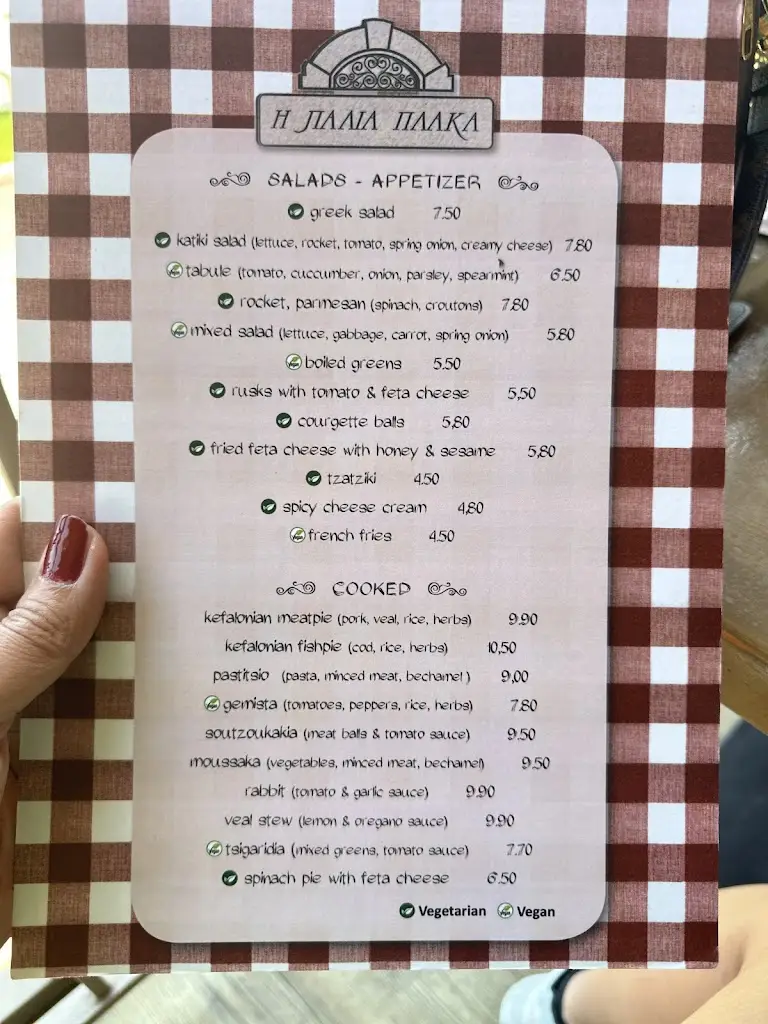 Η ΠΑΛΙΑ ΠΛΑΚΑ
SALADS - APPETIZER
greek salad 7.50
katiki salad (lettuce, rocket, tomato, spring onion, creamy cheese) 7.80
tabule (tomato, cuccumber, onion, parsley, spearmint) 6.50
rocket, parmesan (spinach, croutons) 7.80
mixed salad (lettuce, gabbage, carrot, spring onion) 5.80
boiled greens 5.50
rusks with tomato & feta cheese 5,50
courgette balls 5,80
fried feta cheese with honey & sesame 5,80
tzatziki 4.50
spicy cheese cream 4,80
french fries 4.50
COOKED
kefalonian meatpie (pork, veal, rice, herbs) 9.90
kefalonian fishpie (cod, rice, herbs) 10,50
pastitsio (pasta, minced meat, bechamel ) 9,00
gemista (tomatoes, peppers, rice, herbs) 7.80
soutzoukakia (meat balls & tomato sauce) 9.50
moussaka (vegetables, minced meat, bechamel) 9.50
rabbit (tomato & garlic sauce) 9.90
veal stew (lemon & oregano sauce) 9.90
tsigaridia (mixed greens, tomato sauce) 7.70
spinach pie with feta cheese 6.50
Vegetarian Vegan